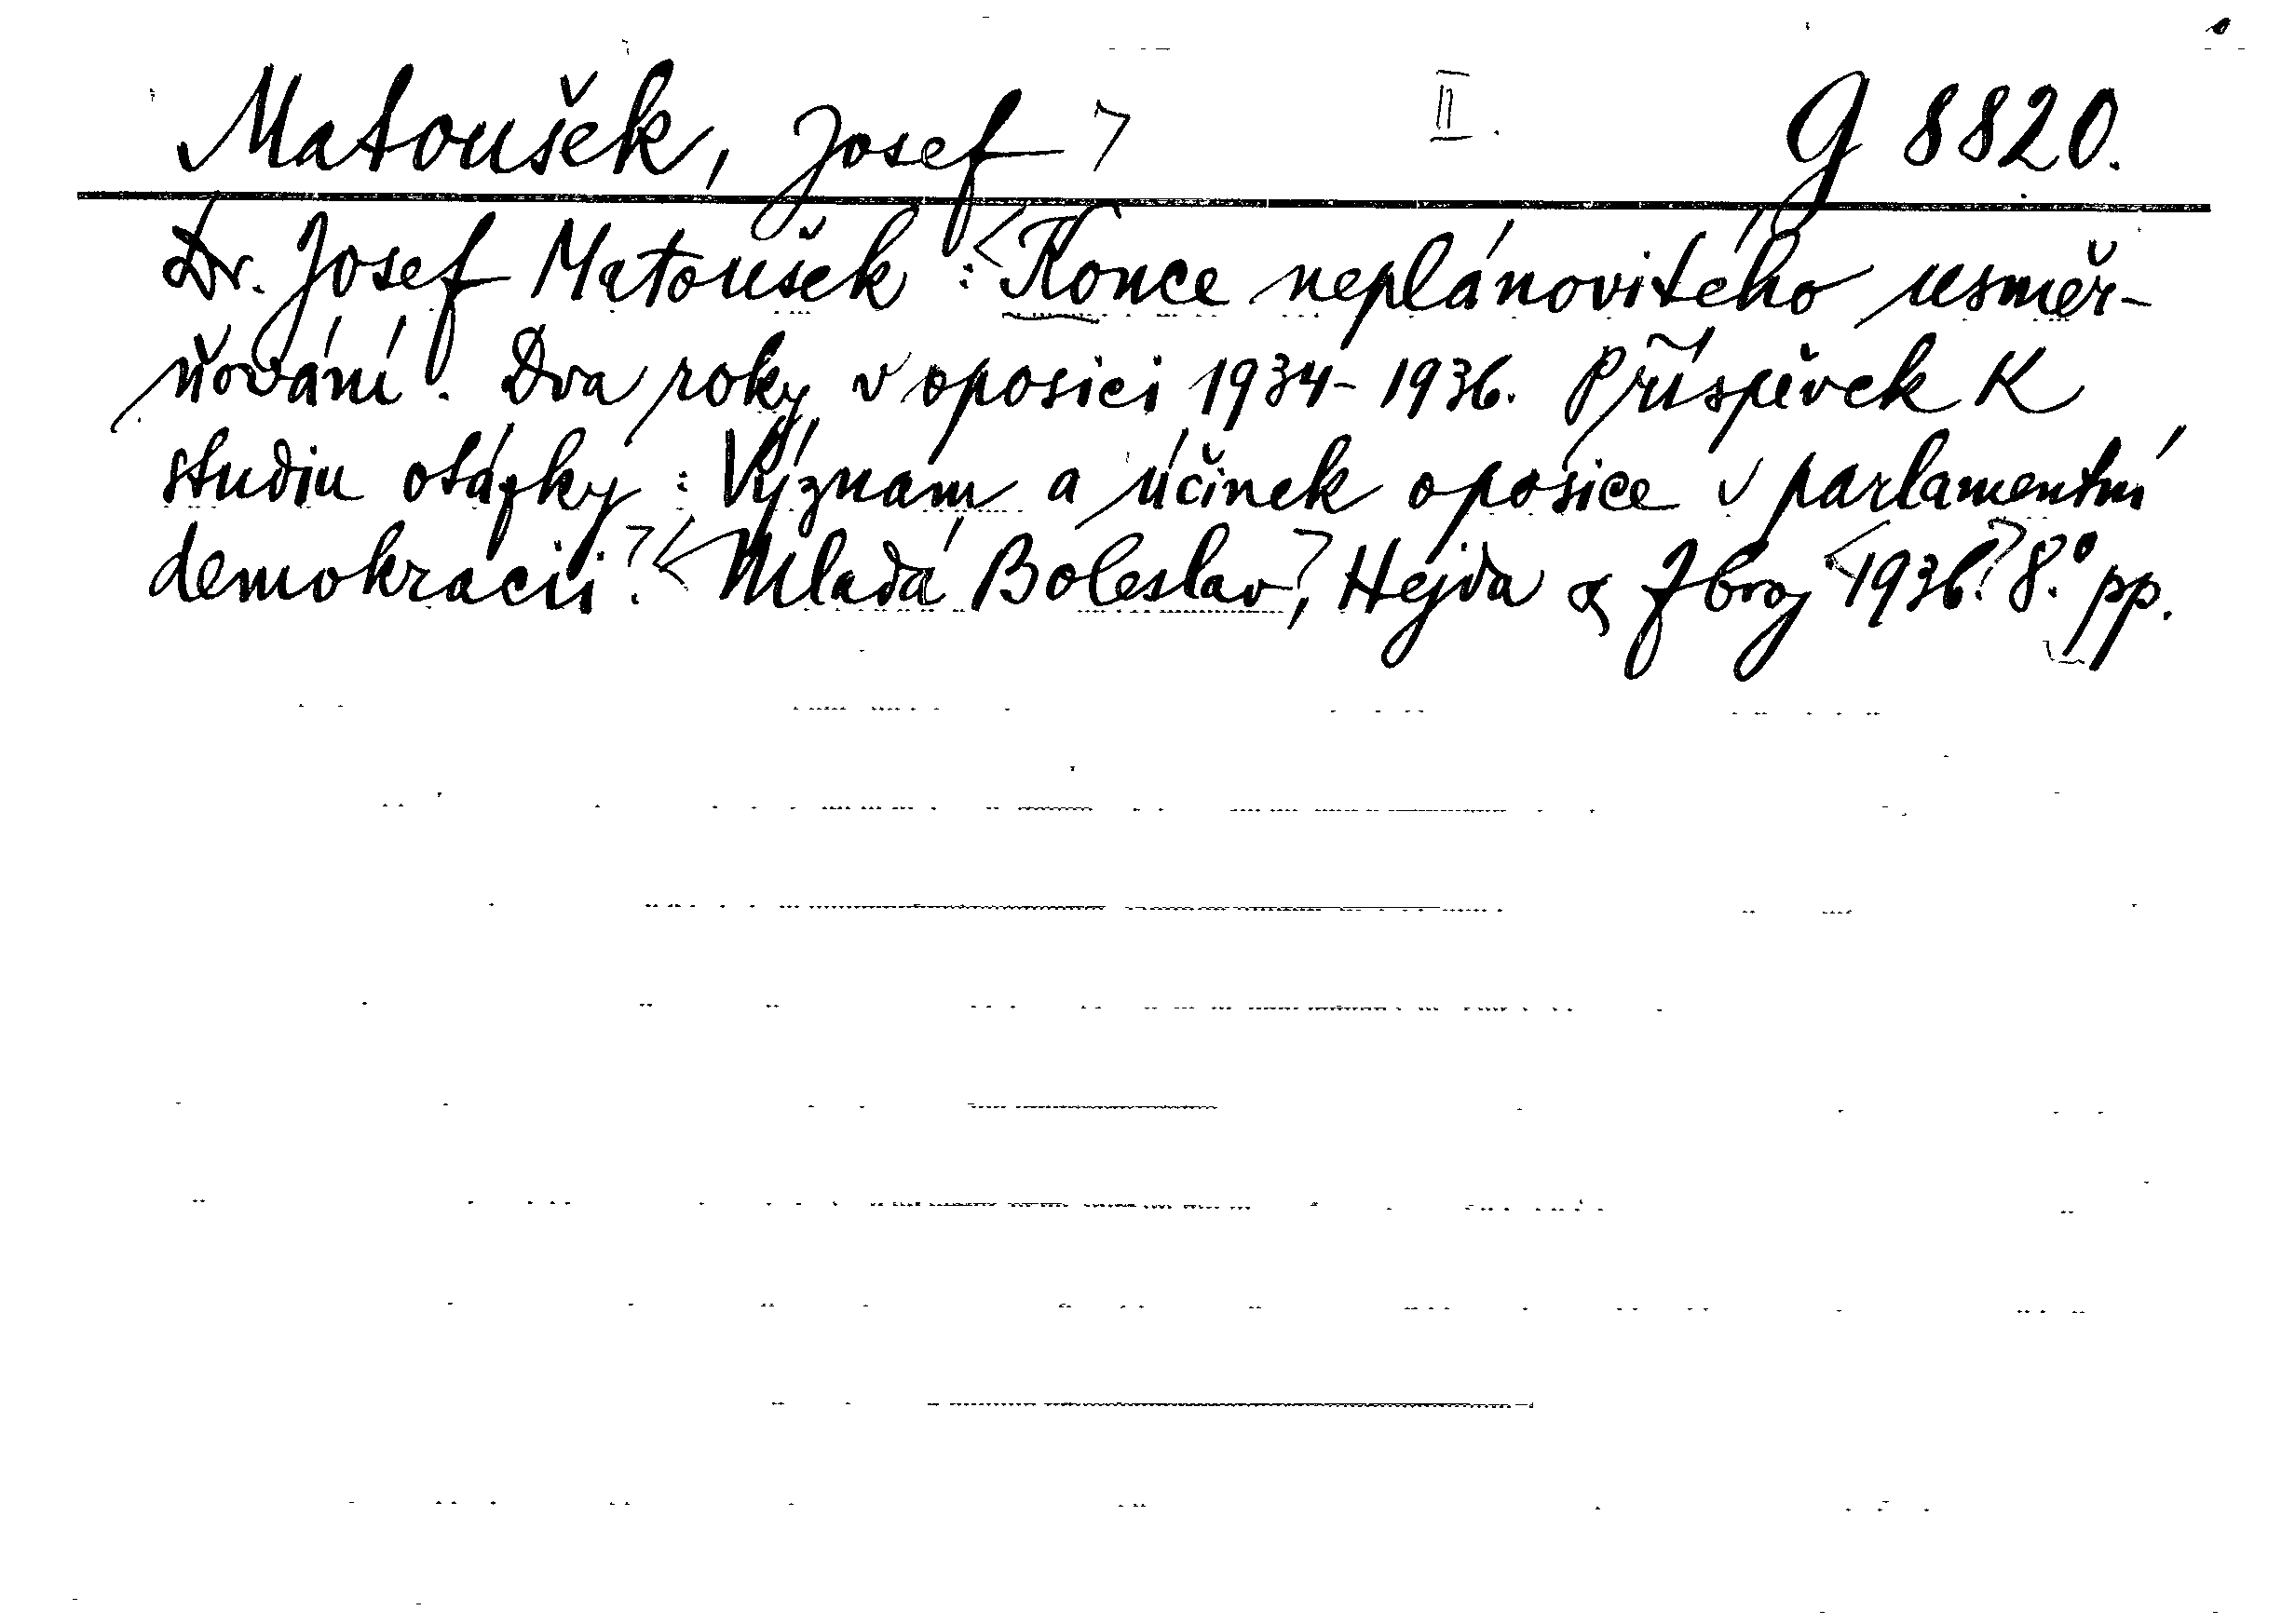 Matoušek, Josef II. G 8820.
Dr. Josef Matoušek: Konce neplánovitého usměr-
ňování. Dva roky v oposici 1934-1936. Příspěvek k
studiu otázky: Význam a účinek oposice v parlamentní
demokracii. Mladá Boleslav, Hejda & Zbroj 1936. 8.° pp.